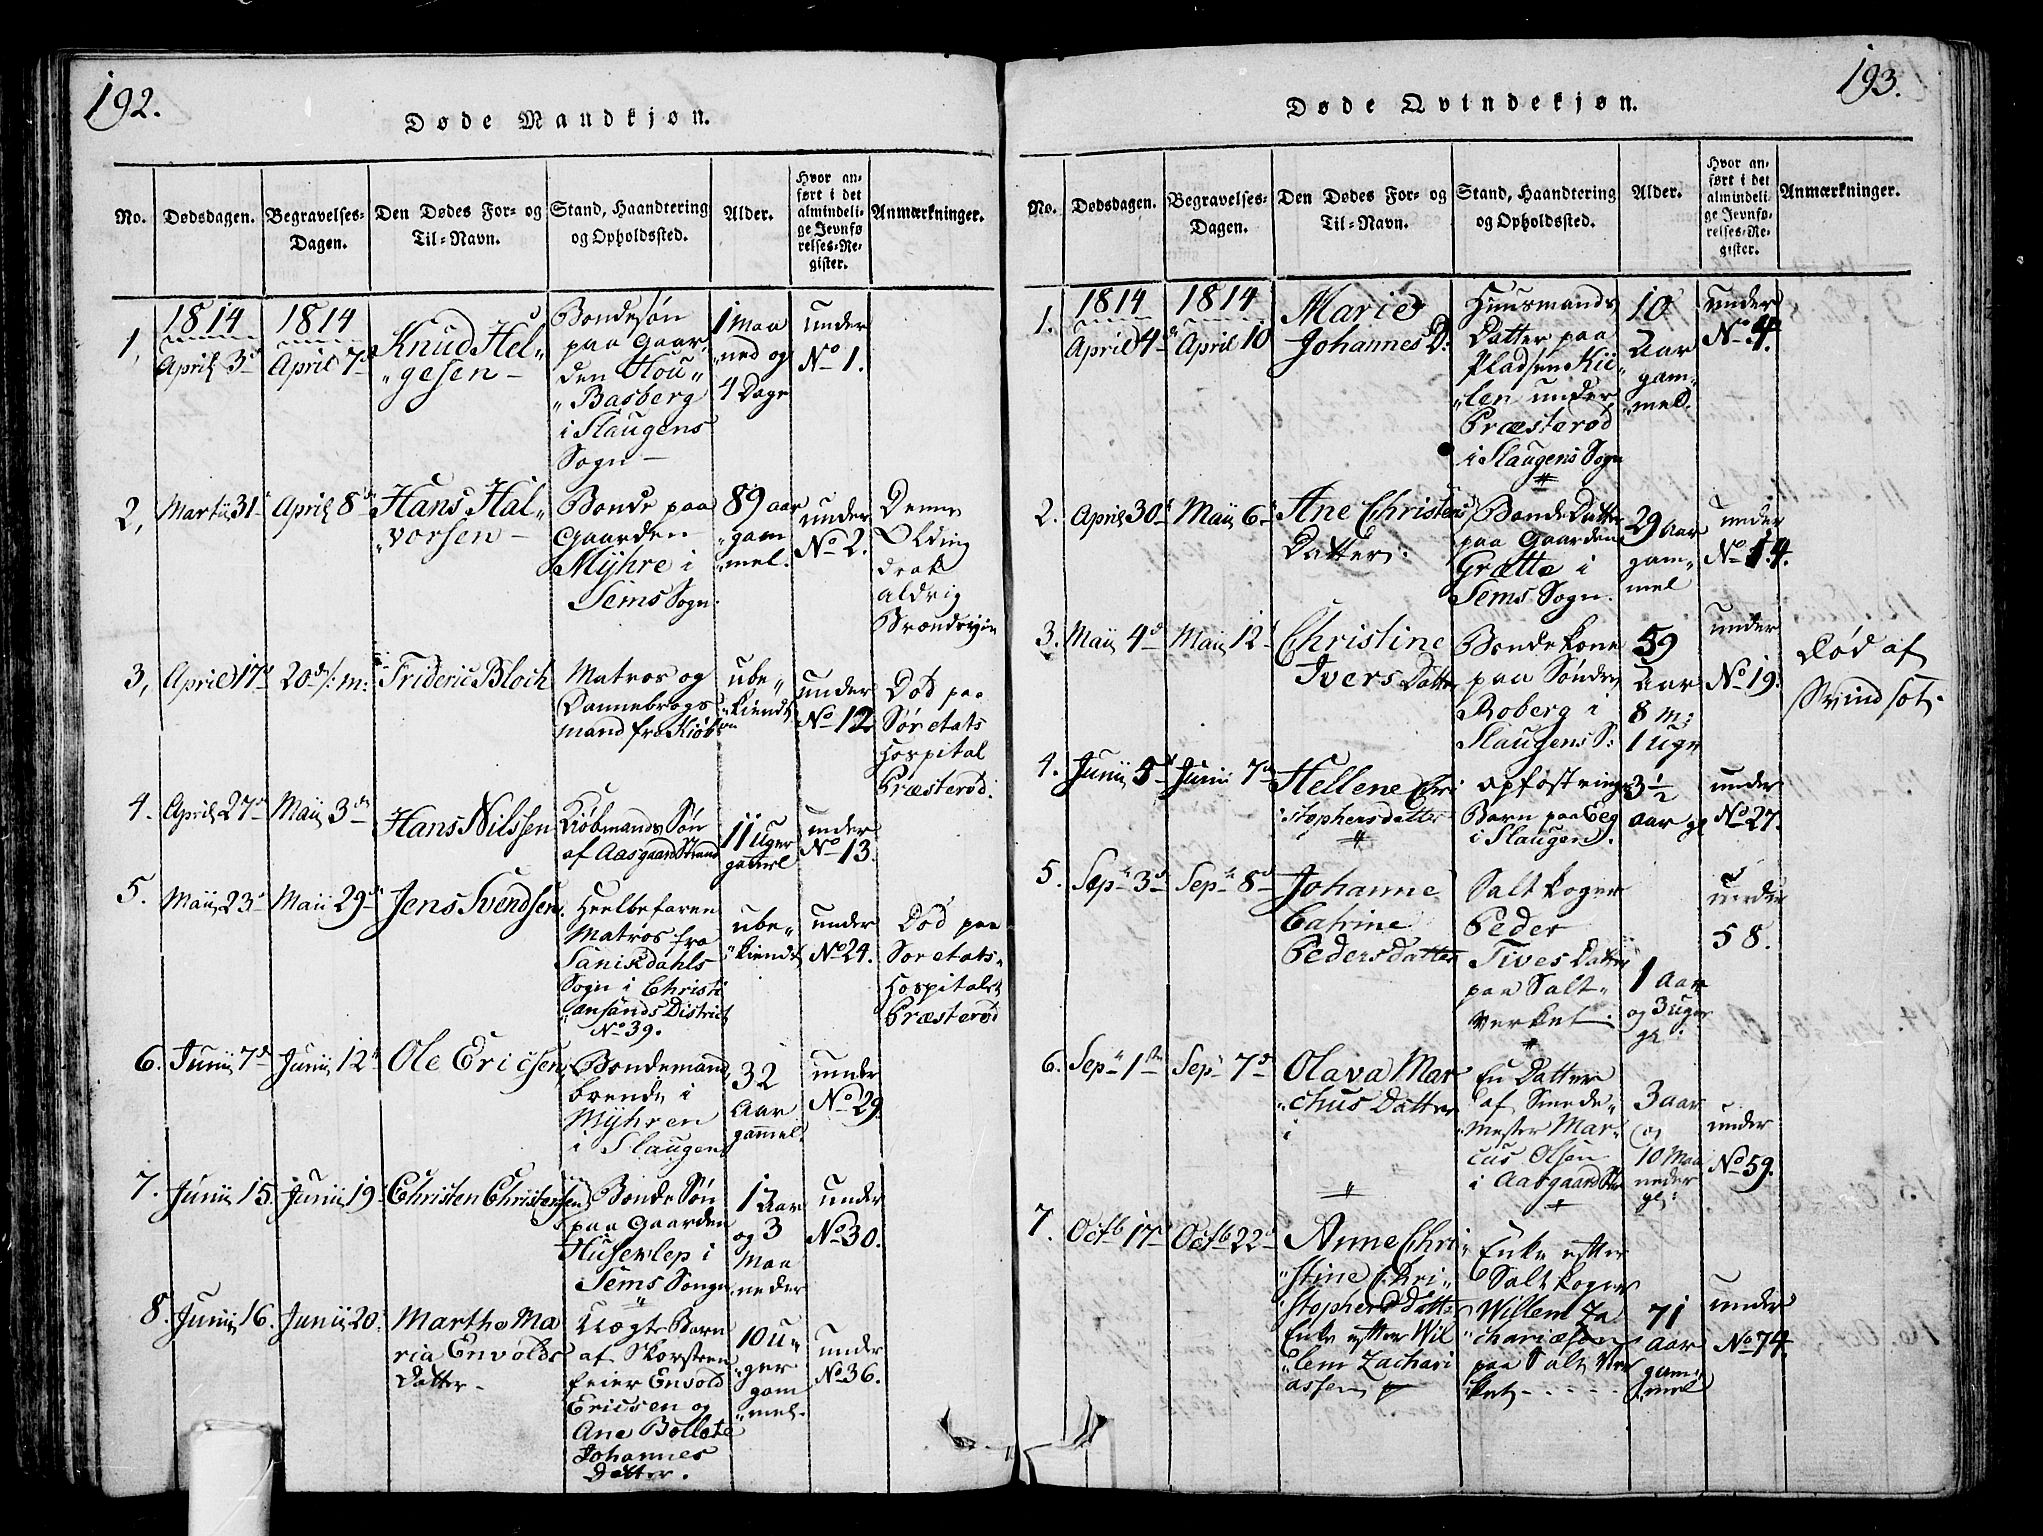 192.
Døde Mandkjøn.
No.
Dødsdagen.
Begravelses-
Dagen.
Den Dødes For- og
Til-Navn.
Stand, Haandtering
og Opholdssted.
Alder.
Hvor an-
ført i det
almindeli-
ge Jevnfø-
relses-Re-
gister.
Anmærkninger.
1,
1814
April 3d
1814
April 7d
Knud Hel„
„gesen
Bondesøn
paa Gaar„
den Hou„
„Basberg
i Slaugens
Sogn
1 Maa
ned og
4 Dage
under
No 1.
2,
Martii 31
April 8de
Hans Hal„
„vorsen
Bonde paa
Gaarden
Mÿhre i
Sems Sogn.
89 aar
„gam
„mel.
under
No 2.
Denne
Olding
drak
aldrig
Brændeviin
3,
April 17d
20d /: m:
Frideric Bloch
Matros og
Dannebrogs
mand fra Kiøb
ube„
„kiendt
under
No 12
Død paa
Søretats
Hospital
Præsterød.
4.
April 27d
Maij 3de
Hans Nilssen
Kiøbmands Søn
af Aasgaard Strand
11 Uger
gamel
under
No 13.
5.
Maij 23d
Maii 29de
Jens Svendsen.
Heelbefaren
Matros fra
Sanikdahls
Sogn i Christi
„ansands District
No 39.
ube„
„kiendt
under
No 24.
Død paa
Soretats„
Hospitalet
Præsterød
6.
Junij 7d
Junij 12
Ole Ericsen,
Bondemand
boende i
Mÿhren
i Slaugen
32
Aar
gammel.
under
No 29
7.
Junij 15.
Junij 19
Christen Christensen,
BondeSøn
paa Gaarden
Huserlep i
Sems Songn
1 Aar
og 3
Maa
neder
under
No 30.
8.
Junij 16.
Junij 20
Martha Ma
ria Envolds
Datter
Uægte Barn
af Skorsteen
feier Envold
Ericsen og
Ane Bollete
Johannes
Datter.
10 U„
„ger
gam
„mel.
under
No 36.
193.
Døde Qvindekjøn.
No.
Dødsdagen.
Begravelses-
Dagen.
Den Dødes For- og
Til-Navn.
Stand, Haandtering
og Opholdssted.
Alder.
Hvor an-
ført i det
almindeli-
ge Jevnfø-
relses-Re-
gister.
Anmærkninger.
1.
1814
April 4d
1814
April 10
Marie
Johannes D:
Huusmands
Datter paa
Pladsen Kii„
„len under
Præsterød
i Slaugens Sogn
10
Aar
gam„
„mel.
under
No 4.
2.
April 30d
Maij 6d
Ane Christens
Datter.
Bonde Datter
paa Gaarden
Grætte i
Sems Sogn.
29 aar
gam„
mel
under
No 14.
3.
Maij 4d
Maij 12
Christine
Ivers Datter
Bondekone
paa Søndre
Roberg i
Slaugens S:
59
Aar
8 M:
1 Uge
under
No 19.
død af
Svindsot.
4.
Junij 5d
Junii 7d
Hellene Chri
„stophersdatter
opfostrings
Barn paa Eeg
i Slaugen.
3½
aar gl
under
No 27.
5.
Sepr 3d
Sepr 8d
Johanne
Catrine
Pedersdatter
Saltkoger
Peder
Tives Datter
paa Salt„
verket.
1 aar
og 3 uger
gl:
under
58.
6.
Sepr 1ste
Sepr 7d
Olava Mar
„chus Datter
En Datter
af Smede„
Mester Mar„
cus Olsen
i Aasgaard Str
3 aar
og
10 Maa
neder
gl:
under
No 59.
7.
Octb 17d
Octb 22d
Anne Chri„
„stine Chri„
stophers Datter
Enke efter Wil
„lem Zachari
assen
Enke efter
Saltkoger
Willem Za
„chariæsen
paa Salt Ver
ket
71
aar
gam„
„mel
under
No 74.